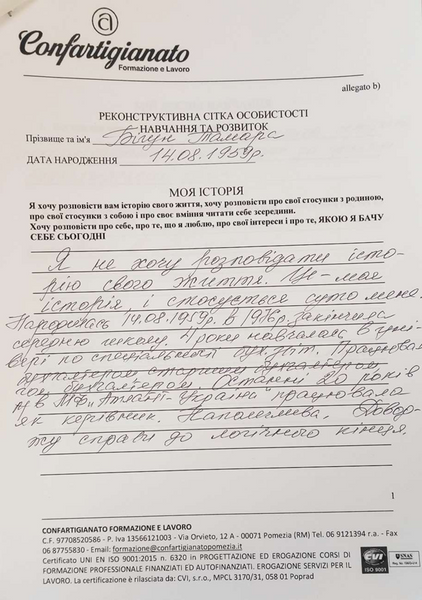 a
Confartigianato
Formazione e Lavoro
allegato b)
РЕКОНСТРУКТИВНА СІТКА ОСОБИСТОСТІ
НАВЧАННЯ ТА РОЗВИТОК
Прізвище та ім'я Бігун Тамара
ДАТА НАРОДЖЕННЯ 14.08.1959р.
МОЯ ІСТОРІЯ
Я хочу розповісти вам історію свого життя, хочу розповісти про свої стосунки з родиною,
про свої стосунки з собою і про своє вміння читати себе зсередини.
Хочу розповісти про себе, про те, що я люблю, про свої інтереси і про те, ЯКОЮ Я БАЧУ
СЕБЕ СЬОГОДНІ
Я не хочу розповідати істо-
рію свого життя. Це - моя
історія і стосується суто мене.
Народилась 14.08.1959р. В 1976р. закінчила
середню школу. 4 роки навчалась в уні-
вері по спеціальності бухоблік. Працювала
бухгалтером старшим бухгалтером
гол. бухгалтером. Останні 20 років
в МФ „ - Україна" працювала
як керівник. Наполеглива. Довод-
жу справи до логічного кінця.
1
CONFARTIGIANATO FORMAZIONE E LAVORO
C.F. 97708520586 - P. Iva 13566121003 - Via Orvieto, 12 A - 00071 Pomezia (RM) Tel. 06 9121394 r.a. - Fax
06 87755830 - Email: formazione@confartigianatopomezia.it
Certificato UNI EN ISO 9001:2015 n. 6320 in PROGETTAZIONE ED EROGAZIONE CORSI DI
FORMAZIONE PROFESSIONALE FINANZIATI ED AUTOFINANZIATI. EROGAZIONE SERVIZI PER IL
LAVORO. La certificazione è rilasciata da: CVI, s.r.o., MPCL 3170/31, 058 01 Poprad
CVI
ISO 9001
SNAS